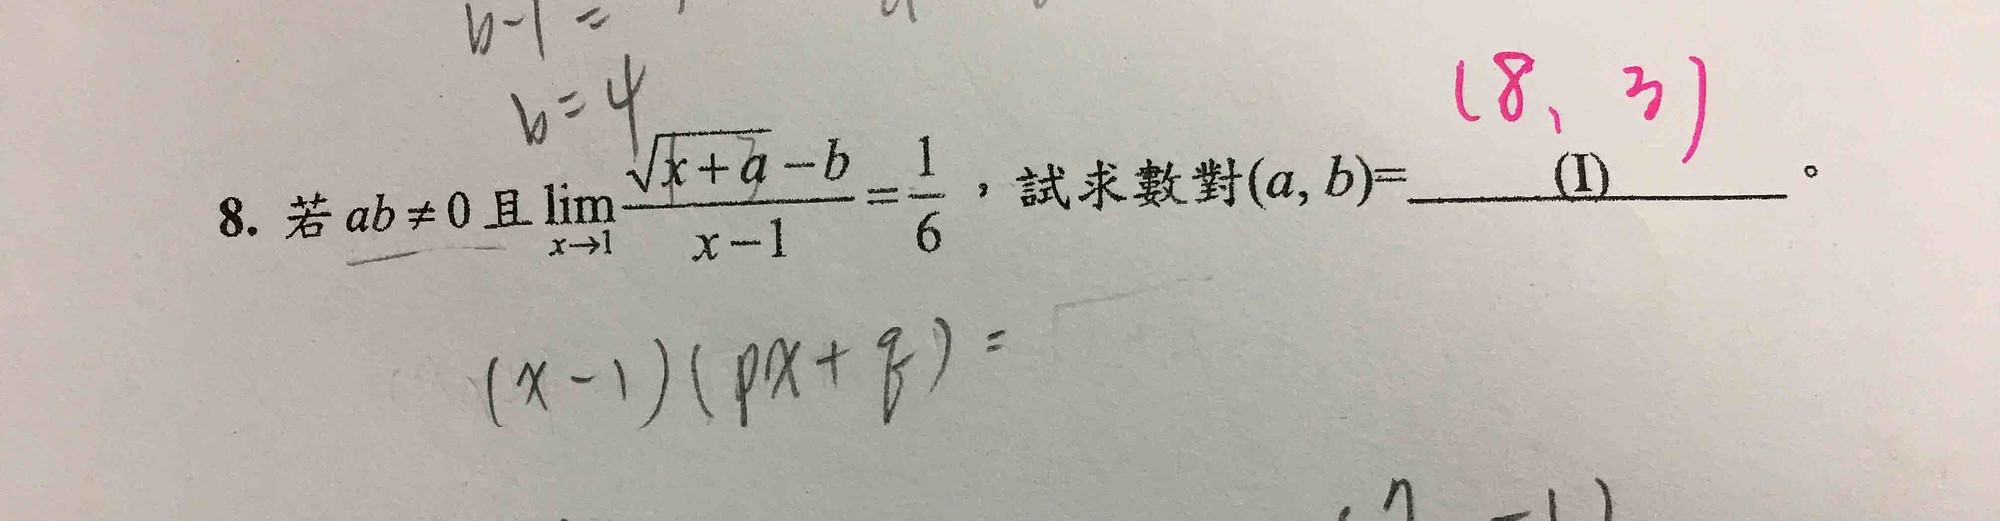 b-1 =
b=4
(8, 3)
8. 若 ab≠0 且 lim_{x→1} (√(x+a) - b)/(x-1) = 1/6 ,試求數對(a, b)= (I) 。
(x-1)(px+q) =